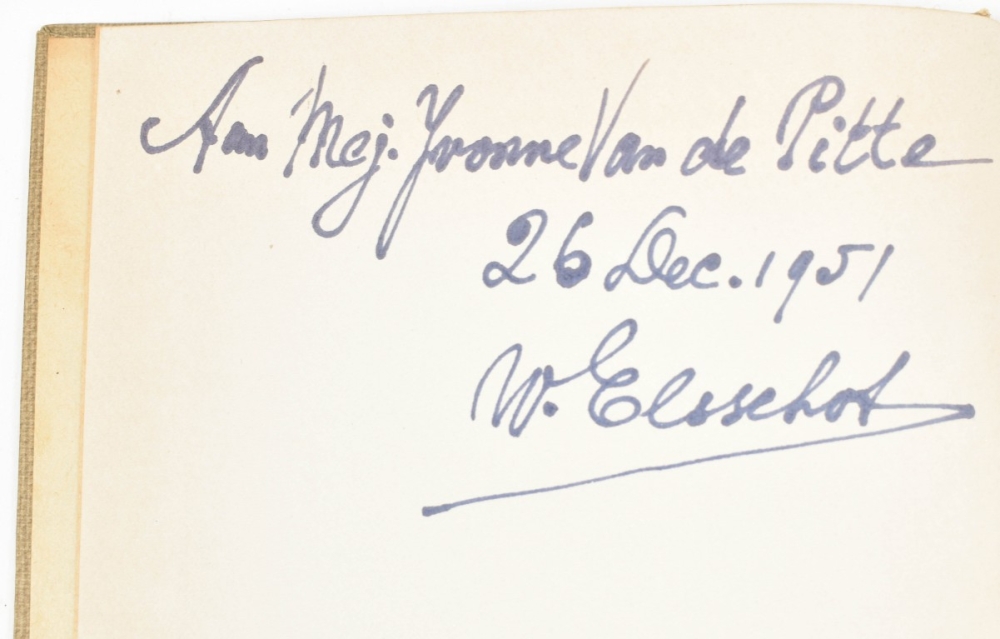 Aan Mej. Yvonne Van de Pitte
26 Dec. 1951
W. Elsschot